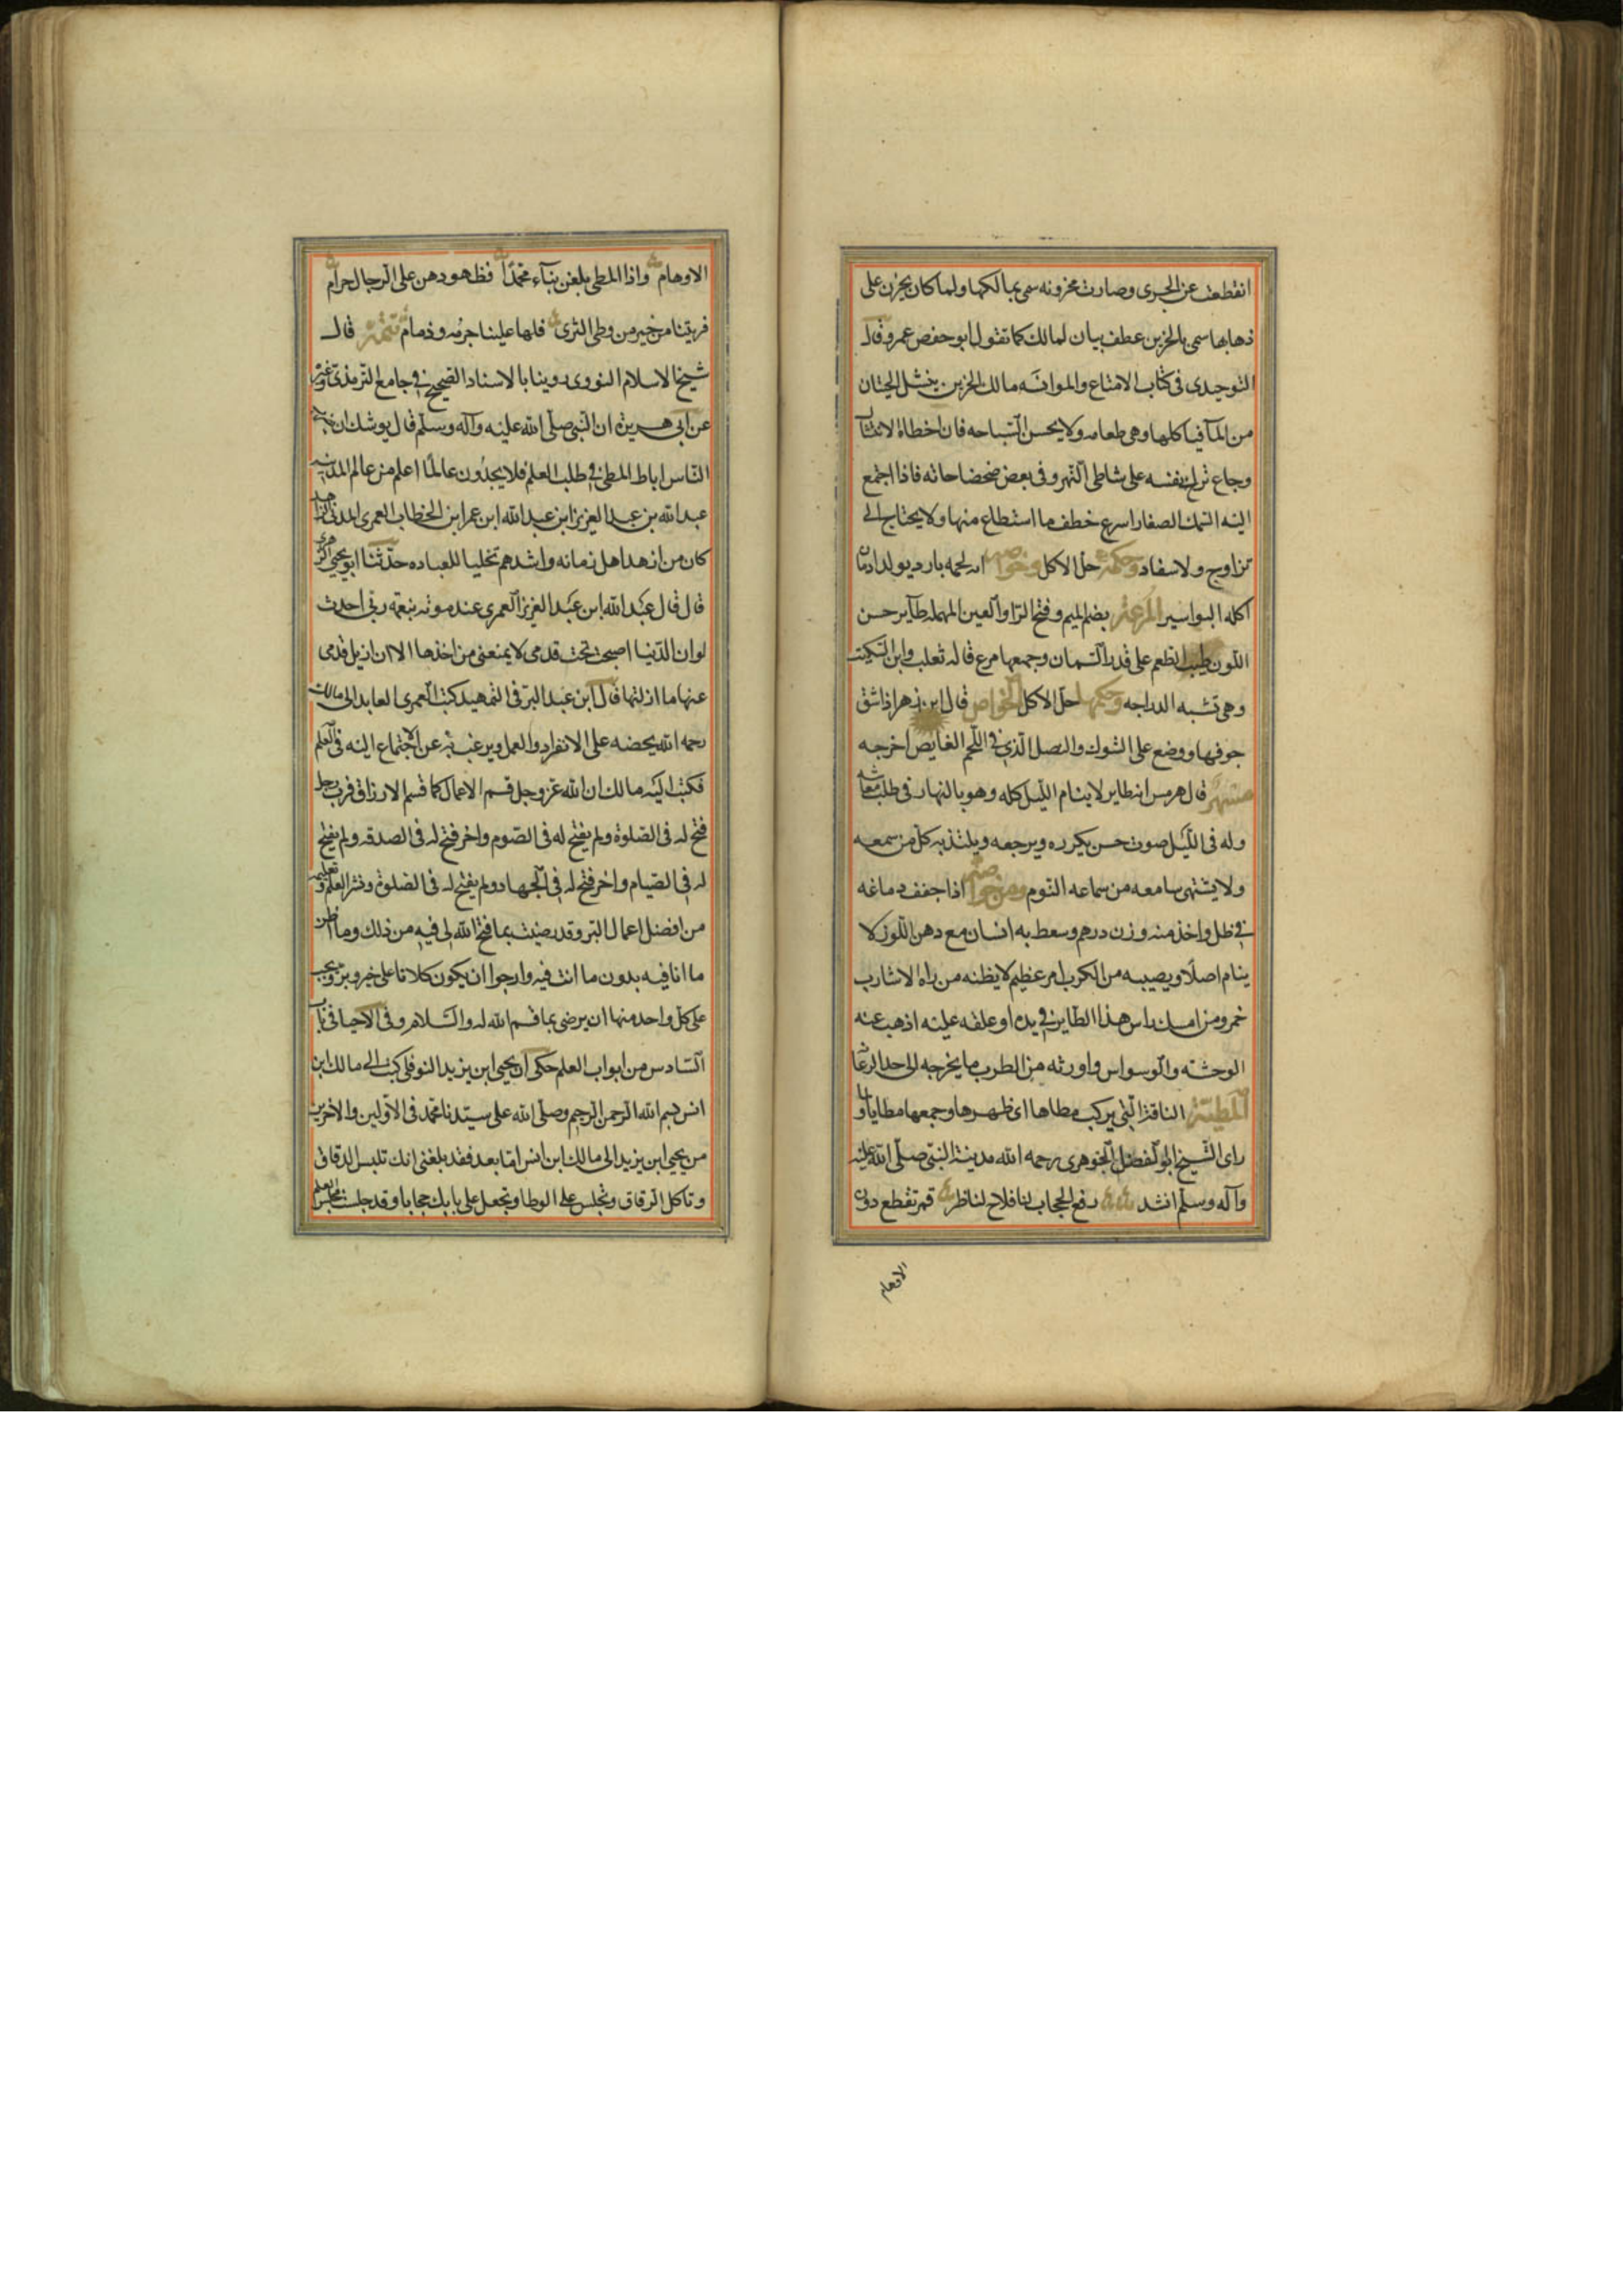 انقطعت عن الجرى وصارت مخزونه سمى بمالكها ولما كان يحزن على
ذهابها سمى بالحزين عطف بيان لمالك كما تقول ابو حفص عمرو قال
التوحيدى فى كتاب الامتاع والموانسه مالك الحزين ينشل الحيتان
من المآ فياكلها وهى طعامه ولا يحسن السباحه فان اخطاه الانتشال
وجاع تراه بنفسه على شاطى النهر وفى بعض ضحضاحاته فاذا اجتمع
اليه السمك الصغار اسرع خطف ما استطاع منها ولا يحتاج الى
تزاوج ولا سفاد وحكمه حل الاكل وخواصه ان لحمه بارد يولد ادمان
اكله البواسير المرعه بضم الميم وفتح الرا والعين المهمله طاير حسن
اللون طيب الطعم على قدر السمان وجمعها مرع قاله ثعلب وابن السكيت
وهى تشبه الدراجه وحكمها حل الاكل الخواص قال ابن زهر اذا شق
جوفها ووضع على الشوك والنصل الذى فى اللحم الغايص اخرجه
مسهر قال هرمس انه طاير لا ينام الليل كله وهو بالنهار فى طلب معاشه
وله فى الليل صوت حسن يكرره ويرجعه ويلتذ به كل من سمعه
ولا يشتهى سامعه من سماعه النوم ومن خواصه اذا جفف دماغه
فى ظل واخذ منه وزن درهم وسعط به انسان مع دهن اللوز لا
ينام اصلا ويصيبه من الكرب امر عظيم لا يظنه من راه الا شارب
خمر ومن امسك راس هذا الطاير فى يده او علقه عليه اذهب عنه
الوحشه والوسواس واورثه من الطرب ما يخرجه الى حد الرعنا
المطية الناقة التى يركب مطاها اى ظهرها وجمعها مطايا و
راى الشيخ ابو الفضل الجوهرى رحمه الله مدينة النبى صلى الله عليه
وآله وسلم انشد رفع الحجاب لنا فلاح لناظر قمر تقطع دونه
الاوهام
الاوهام واذا المطى بلغن بنآء محمدا فظهورهن على الرجال حرام
قربتنا من خير من وطى الثرى فلها علينا حرمه وذمام تتمه قال
شيخ الاسلام النووى روينا بالاسناد الصحيح فى جامع الترمذى وغيره
عن ابى هريرة ان النبى صلى الله عليه وآله وسلم قال يوشك ان يضرب
الناس اباط المطى فى طلب العلم فلا يجدون عالما اعلم من عالم المدينه
عبد الله بن عبد العزيز ابن عبد الله ابن عمر ابن الخطاب العمرى المدنى الزاهد
كان من ازهد اهل زمانه واشدهم تخليا للعباده حدثنا ابو يحيى الزهرى
قال قال عبد الله ابن عبد العزيز العمرى عند موته بنعمة ربى احدث
لو ان الدنيا اصبحت تحت قدمى لا يمنعنى من اخذها الا ان ازيل قدمى
عنها ما ازلتها قال ابن عبد البر فى التمهيد كتب العمرى العابد الى مالك
رحمه الله يحضه على الانفراد والعمل ويرغب به عن الاجتماع اليه فى العلم
فكتب اليه مالك ان الله عز وجل قسم الاعمال كما قسم الارزاق فرب رجل
فتح له فى الصلوة ولم يفتح له فى الصوم واخر فتح له فى الصدقه ولم يفتح
له فى الصيام واخر فتح له فى الجهاد ولم يفتح له فى الصلوة ونشر العلم وتعليمه
من افضل اعمال البر وقد رضيت بما فتح الله لى فيه من ذلك وما اظن
ما انا فيه بدون ما انت فيه وارجوا ان يكون كلانا على خير وبر ويجب
على كل واحد منها ان يرضى بما قسم الله له والسلام وفى الاحيا فى باب
السادس من ابواب العلم حكى ان يحيى ابن يزيد النوفلى كتب الى مالك ابن
انس بسم الله الرحمن الرحيم وصلى الله على سيدنا محمد فى الاولين والاخرين
من يحيى ابن يزيد الى مالك ابن انس اما بعد فقد بلغنى انك تلبس الدقاق
وتاكل الرقاق وتجلس على الوطا وتجعل على بابك حجابا وقد جلست مجلس العلم